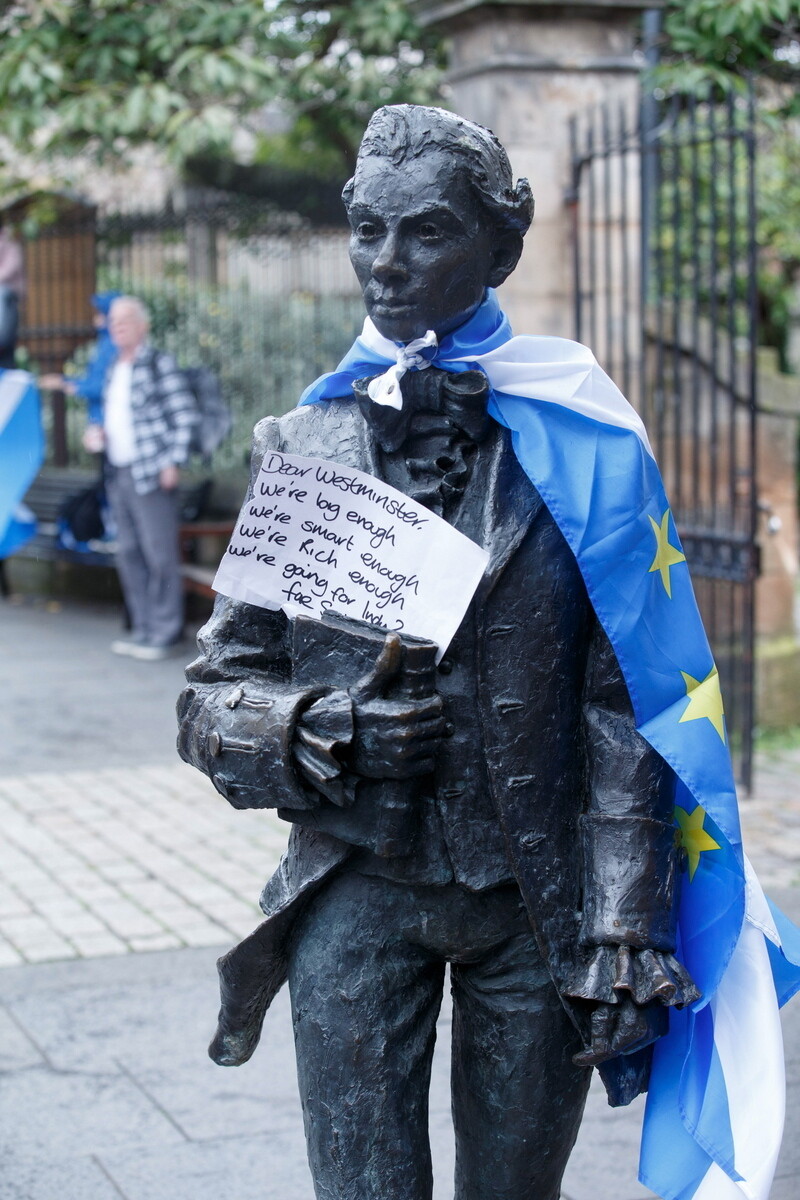 Dear Westminster.
We're big enough
We're smart enough
We're Rich enough
We're going for Indy2
for